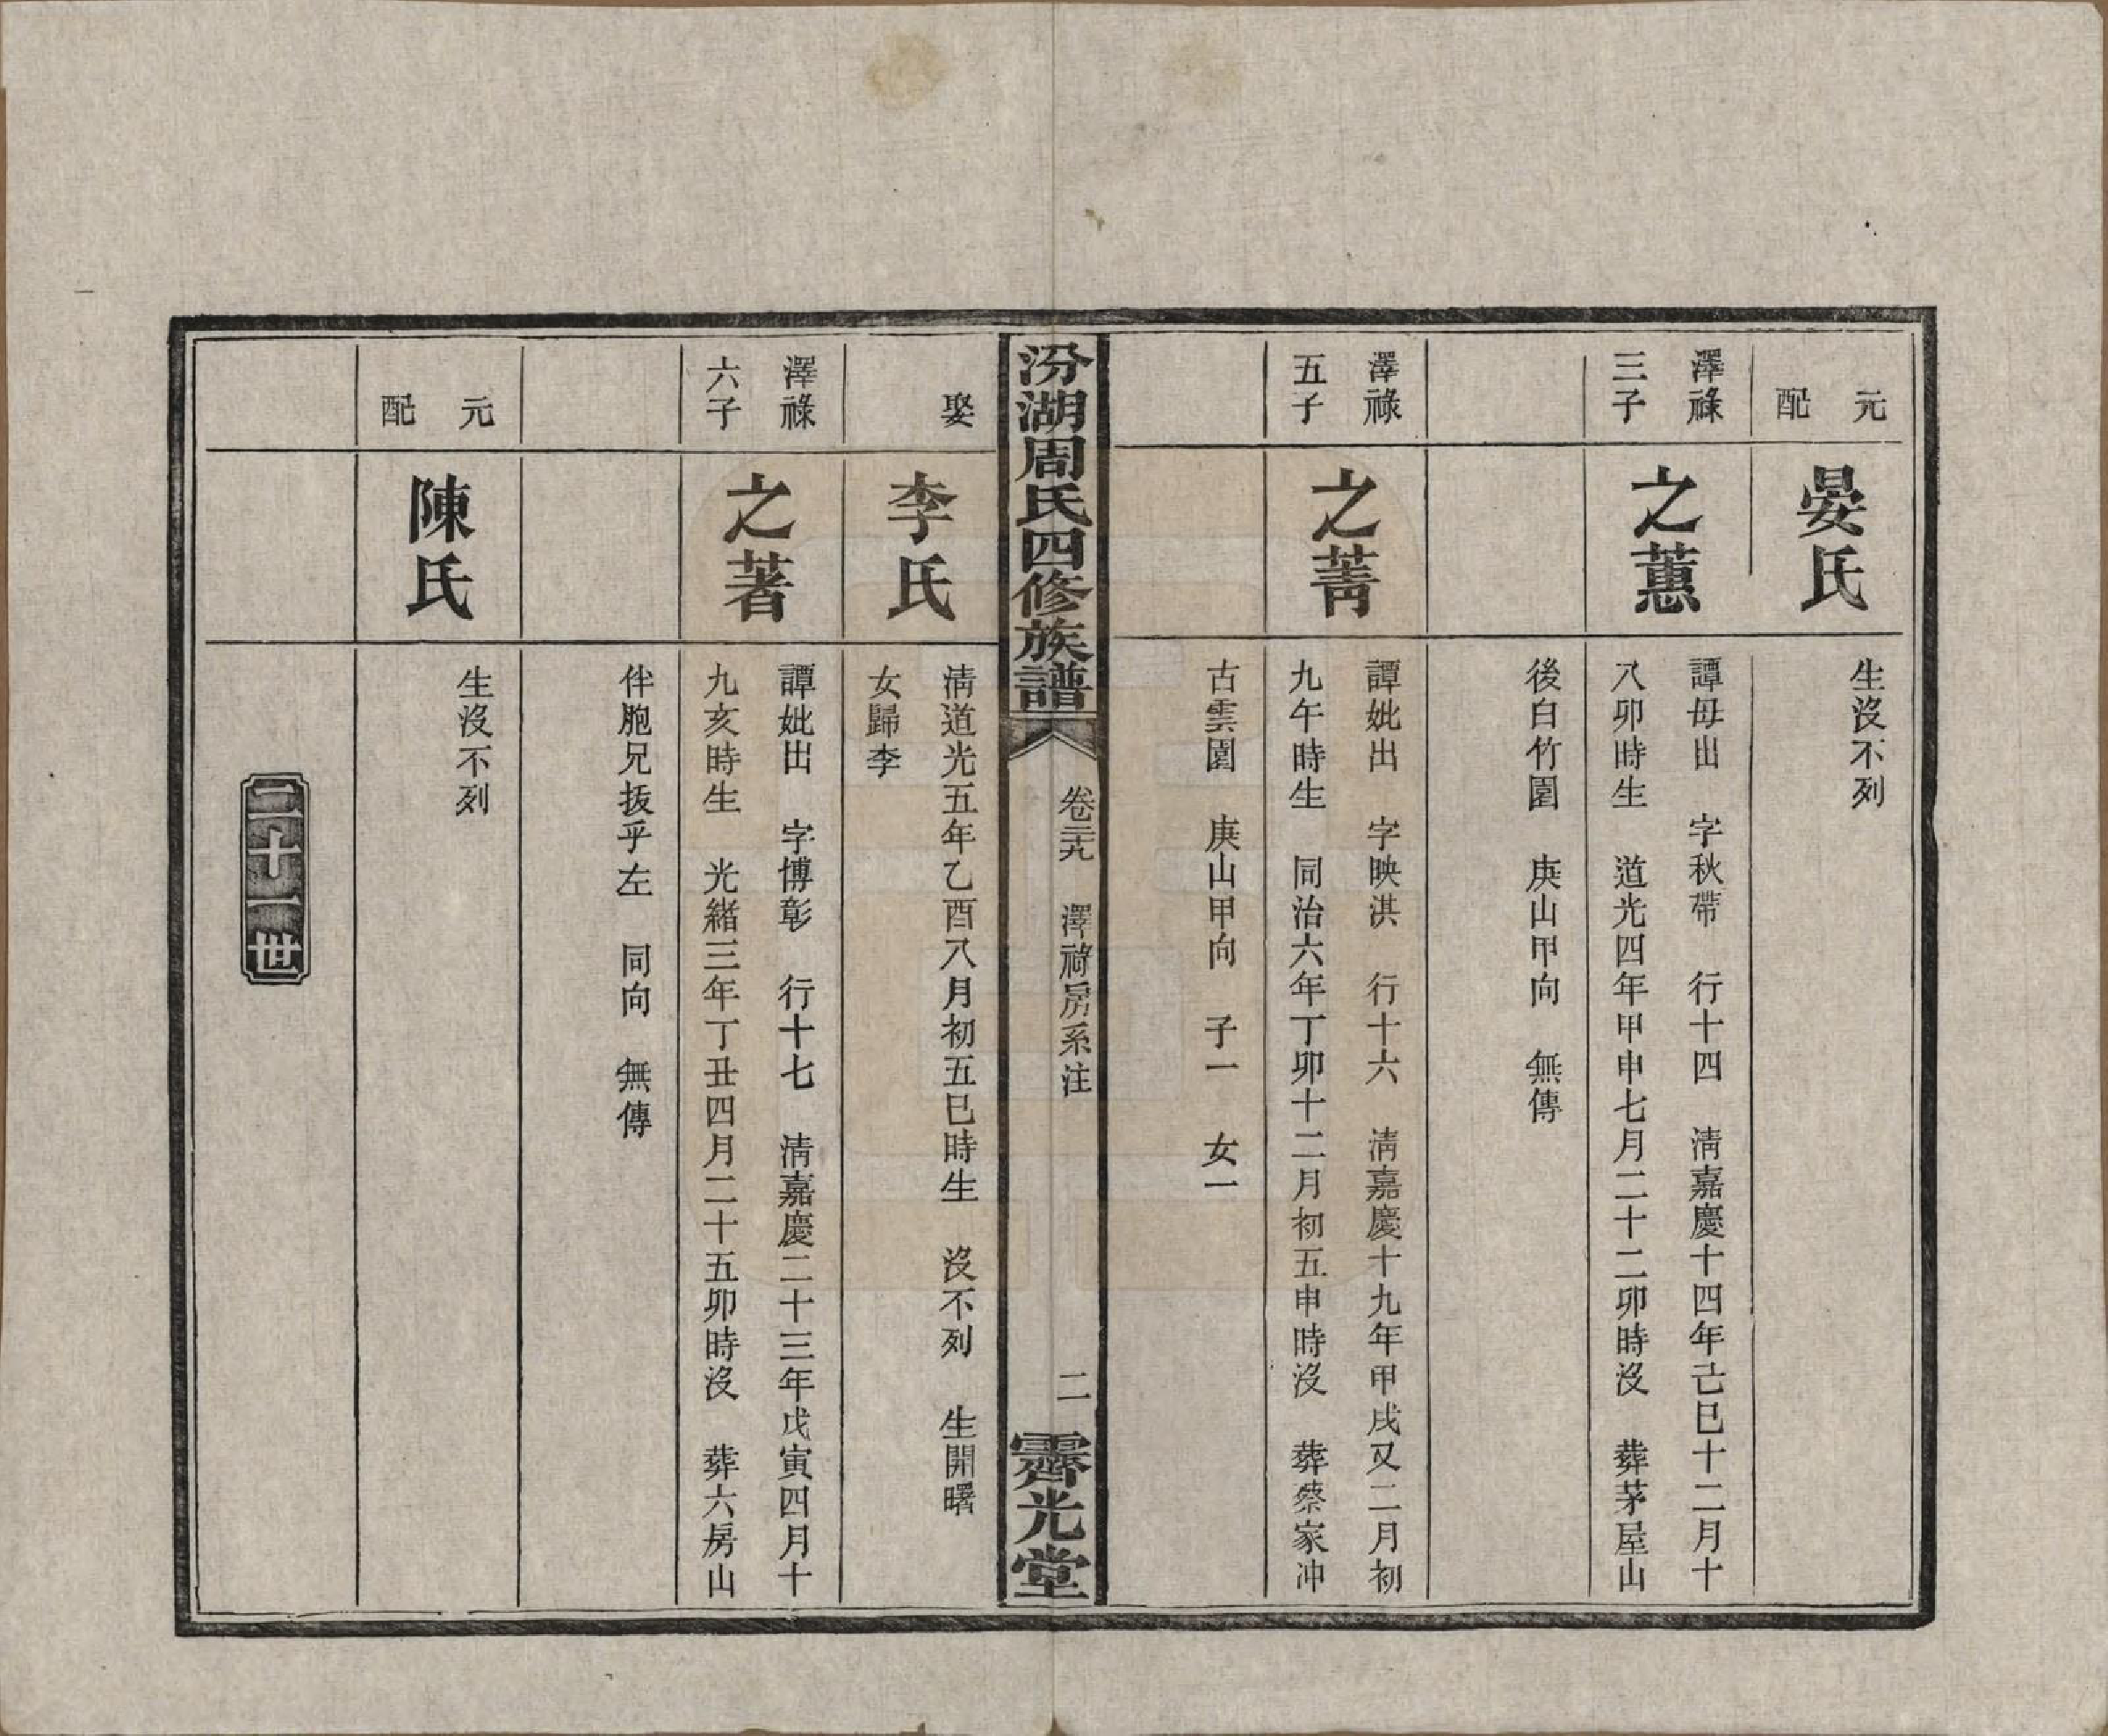 元
配
晏氏
生沒不列
澤祿
三子
之蕙
譚母出 字秋帶 行十四 淸嘉慶十四年己巳十二月十
八卯時生 道光四年甲申七月二十二卯時沒 葬茅屋山
後白竹園 庚山甲向 無傳
澤祿
五子
之菁
譚妣出 字映淇 行十六 淸嘉慶十九年甲戌又二月初
九午時生 同治六年丁卯十二月初五申時沒 葬蔡家冲
古雲園 庚山甲向 子一 女一
汾湖周氏四修族譜
卷二十九 澤祿房系注
二
霽光堂
娶
李氏
淸道光五年乙酉八月初五巳時生 沒不列 生開曙
女歸李
澤祿
六子
之著
譚妣出 字博彰 行十七 淸嘉慶二十三年戊寅四月十
九亥時生 光緒三年丁丑四月二十五卯時沒 葬六房山
伴胞兄拔乎左 同向 無傳
元
配
陳氏
生沒不列
二十一世